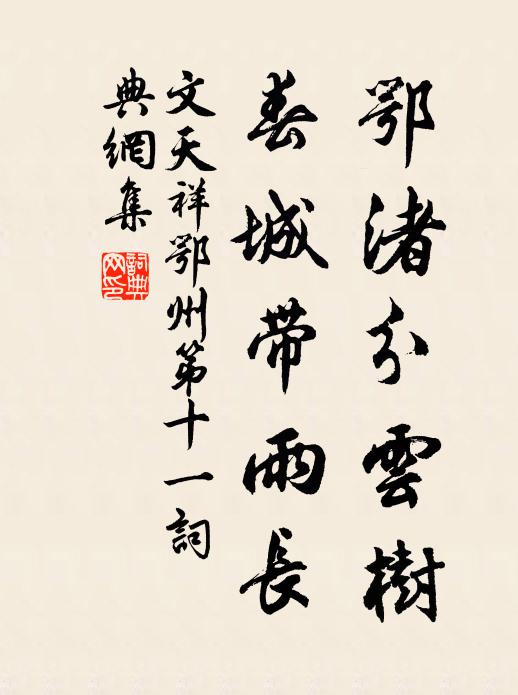 鄂渚分雲樹
春城帶雨長
文天祥鄂州第十一詞
典網集
詞典
网印